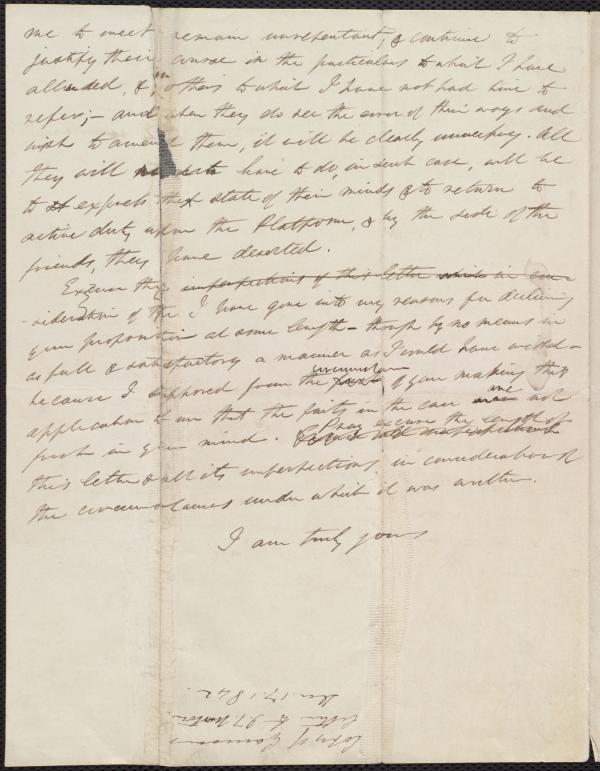 me to meet remain unrepentant, & continue to
justify their course in the particulars to what I have
alluded, & in others to what I have not had time to
refer; – and when they do see the error of their ways and
wish to amend them, it will be clearly unnecessary. All
they will have to do, in such case, will be
to express the state of their minds & to return to
active duty upon the Platform, & by the side of the
friends, they have deserted.
Excuse the imperfections of this letter which in con-
-sideration of the I have gone into my reasons for declining
your proposition at some length – though by no means in
as full & satisfactory a manner as I would have wished –
because I supposed from the circumstan of your making the
application to me that the facts in the case were not
fresh in your mind. Pray excuse the length of
this letter & all its imperfections, in consideration of
the circumstances under which it was written.
I am truly yours
Copy of
letter to J. T.
17. 1842.